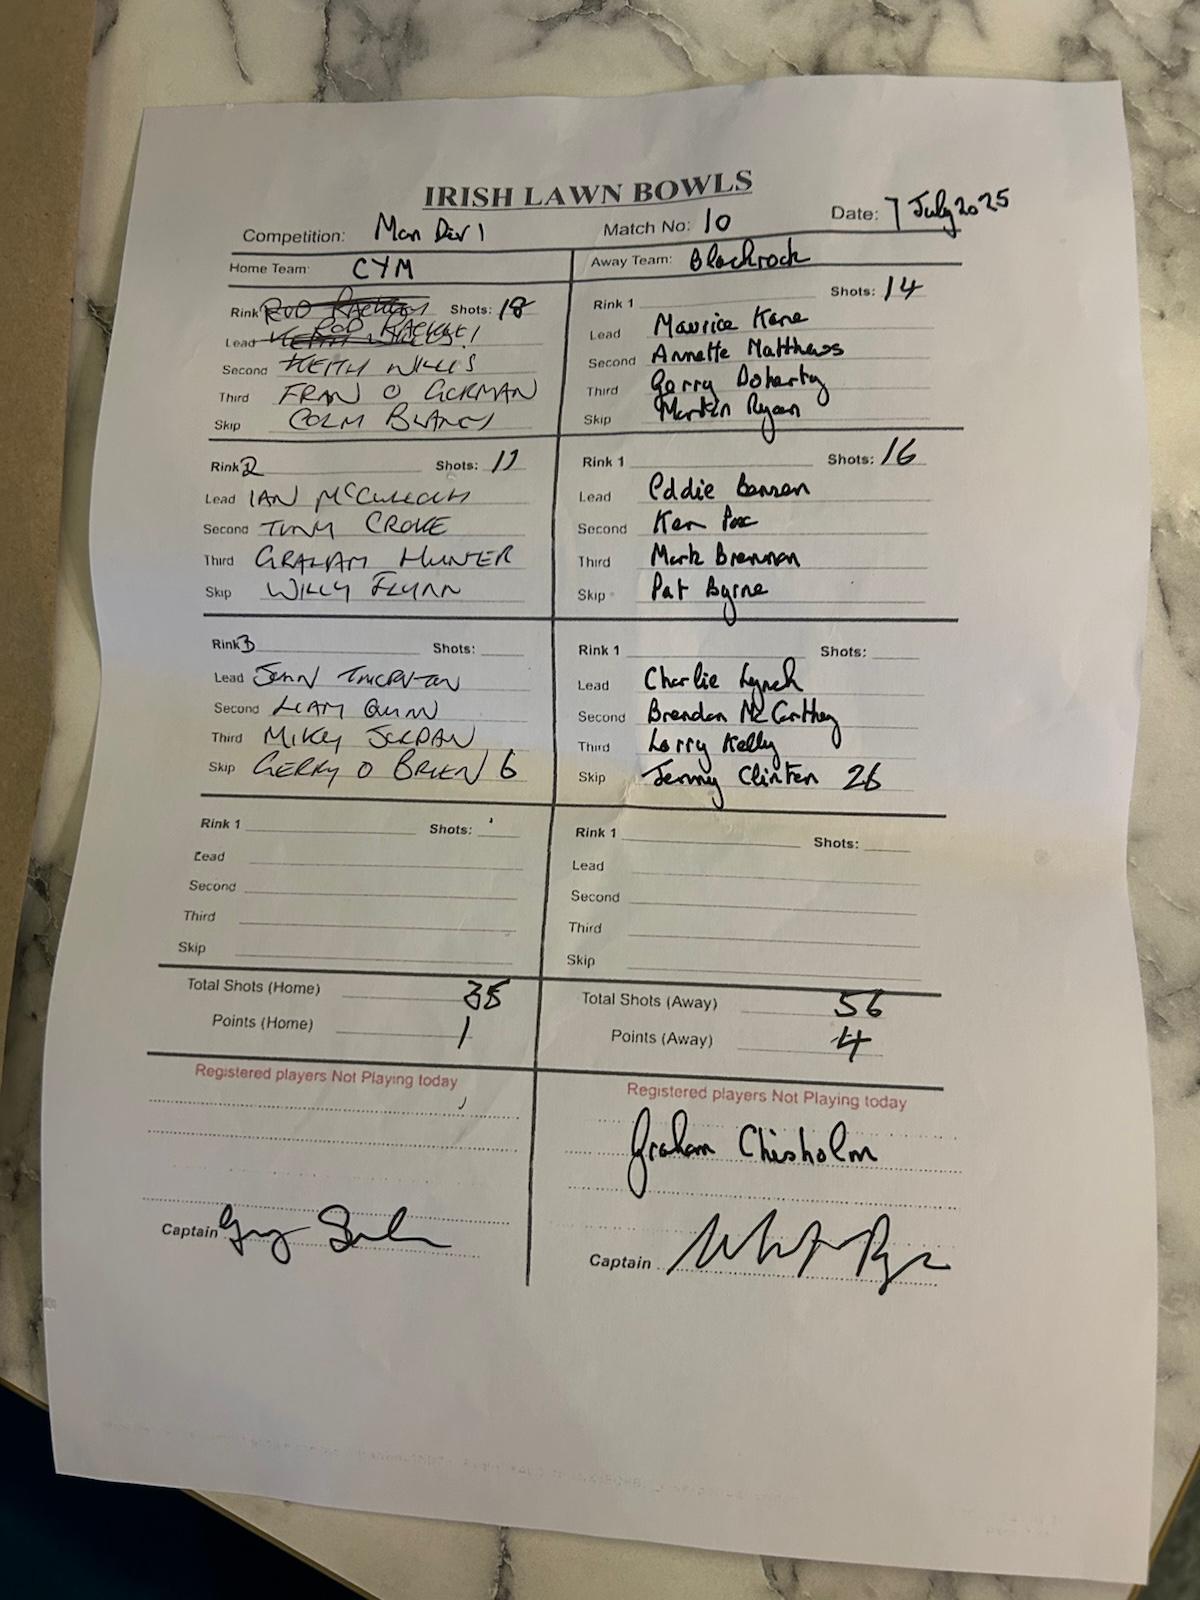 IRISH LAWN BOWLS
Competition: Mon Div 1 Match No: 10 Date: 7 July 2025
Home Team: CYM Away Team: Blackrock
Rink Shots: 18
Lead ROD
Second KEITH WILLIS
Third FRAN O GORMAN
Skip COLM
Rink 1 Shots: 14
Lead Maurice Kane
Second Annette Matthews
Third Gerry Doherty
Skip Martin Ryan
Rink 2 Shots: 11
Lead IAN McCULLOCH
Second TONY CROKE
Third GRAHAM HUNTER
Skip WILLY FLYNN
Rink 1 Shots: 16
Lead Eddie
Second Ken
Third Mark Brennan
Skip Pat Byrne
Rink 3 Shots:
Lead THORNTON
Second LIAM QUINN
Third MIKEY JORDAN
Skip GERRY O BRIEN 6
Rink 1 Shots:
Lead Charlie Lynch
Second Brendan McCarthy
Third Larry Kelly
Skip Clinton 26
Rink 1 Shots:
Lead
Second
Third
Skip
Rink 1 Shots:
Lead
Second
Third
Skip
Total Shots (Home) 35
Points (Home) 1
Total Shots (Away) 56
Points (Away) 4
Registered players Not Playing today
Captain
Registered players Not Playing today
Graham Chisholm
Captain